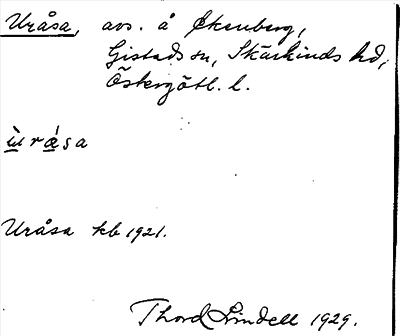 Uråsa, avs. å Ekenberg,
Gistads sn, Skärkinds hd,
Östergötl. l.
ùrása
Uråsa kb 1921.
Thord Lindell 1929.